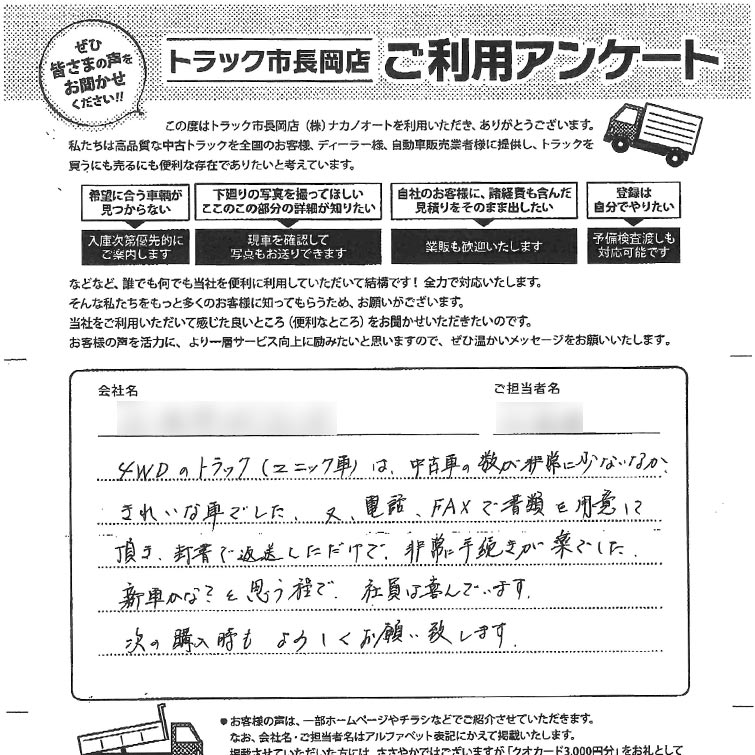 ぜひ
皆さまの声を
お聞かせ
ください!!
トラック市長岡店 ご利用アンケート
この度はトラック市長岡店(株)ナカノオートを利用いただき、ありがとうございます。
私たちは高品質な中古トラックを全国のお客様、ディーラー様、自動車販売業者様に提供し、トラックを
買うにも売るにも便利な存在でありたいと考えています。
希望に合う車輌が
見つからない
入庫次第優先的に
ご案内します
下廻りの写真を撮ってほしい
ここのこの部分の詳細が知りたい
現車を確認して
写真もお送りできます
自社のお客様に、諸経費も含んだ
見積りをそのまま出したい
業販も歓迎いたします
登録は
自分でやりたい
予備検査渡しも
対応可能です
などなど、誰でも何でも当社を便利に利用していただいて結構です!全力で対応いたします。
そんな私たちをもっと多くのお客様に知ってもらうため、お願がございます。
当社をご利用いただいて感じた良いところ(便利なところ)をお聞かせいただきたいのです。
お客様の声を活力に、より一層サービス向上に励みたいと思いますので、ぜひ温かいメッセージをお願いいたします。
会社名
ご担当者名
4WDのトラック(ユニック車)は、中古車の数が非常に少ないなか、
きれいな車でした。又、電話、FAXで書類を用意して
頂き、封書で返送しただけで、非常に手続きが楽でした。
新車かな?と思う程で、社員は喜んでいます。
次の購入時もよろしくお願い致します。
●お客様の声は、一部ホームページやチラシなどでご紹介させていただきます。
なお、会社名・ご担当者名はアルファベット表記にかえて掲載いたします。
掲載させていただいた方には、ささやかではございますが「クオカード3,000円分」をお礼として